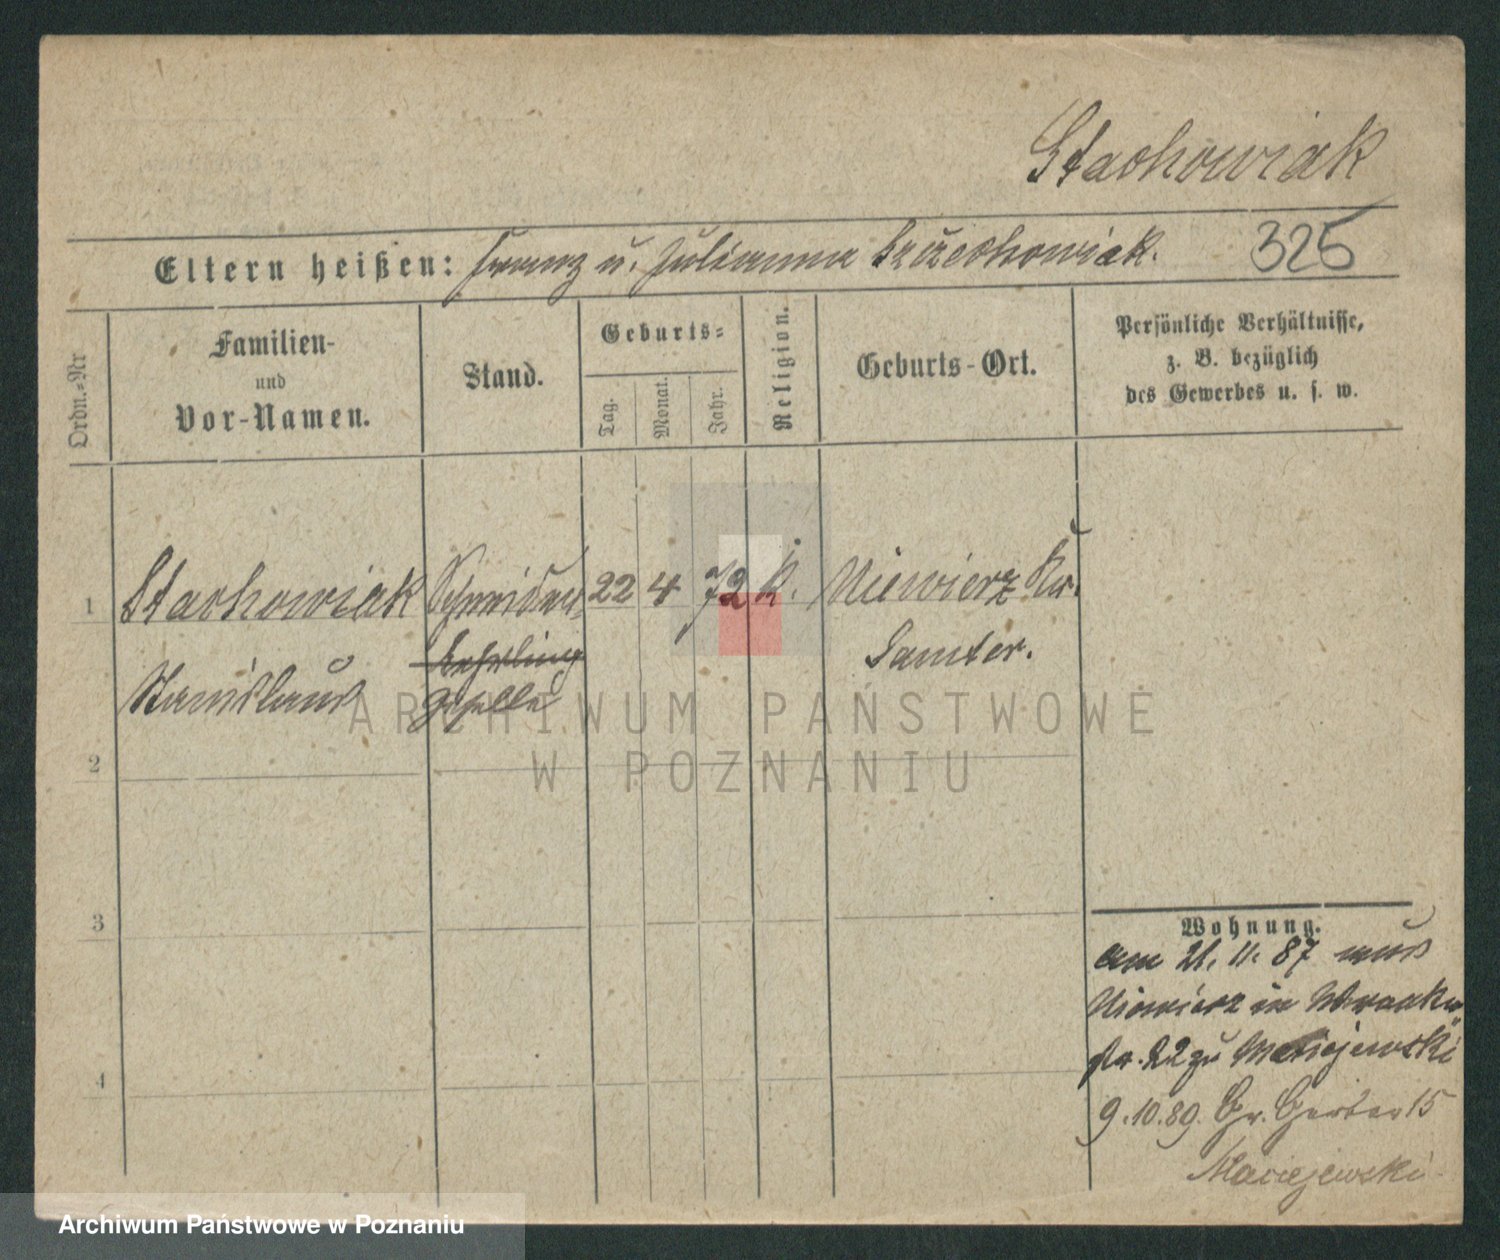 Stachowiak
Eltern heißen: Franz u. Julianna Szczechowiak.
325
Ordn.-Nr
Familien-
und
Vor-Namen.
Stand.
Geburts-
Tag.
Monat.
Jahr.
Religion.
Geburts-Ort.
Persönliche Verhältnisse,
z. B. bezüglich
des Gewerbes u. s. w.
1 Stachowiak Schneider- 22 4 72 k. Niewierz Kr.
Lehrling Samter.
Stanislaus Geselle
ARCHIWUM PAŃSTWOWE
W POZNANIU
2
3
4
Wohnung.
am 21. 11. 87 aus
Niewierz in
str. 22 zu Maciejewski
9.10.89. Gr. Gerber 15
Maciejewski
Archiwum Państwowe w Poznaniu